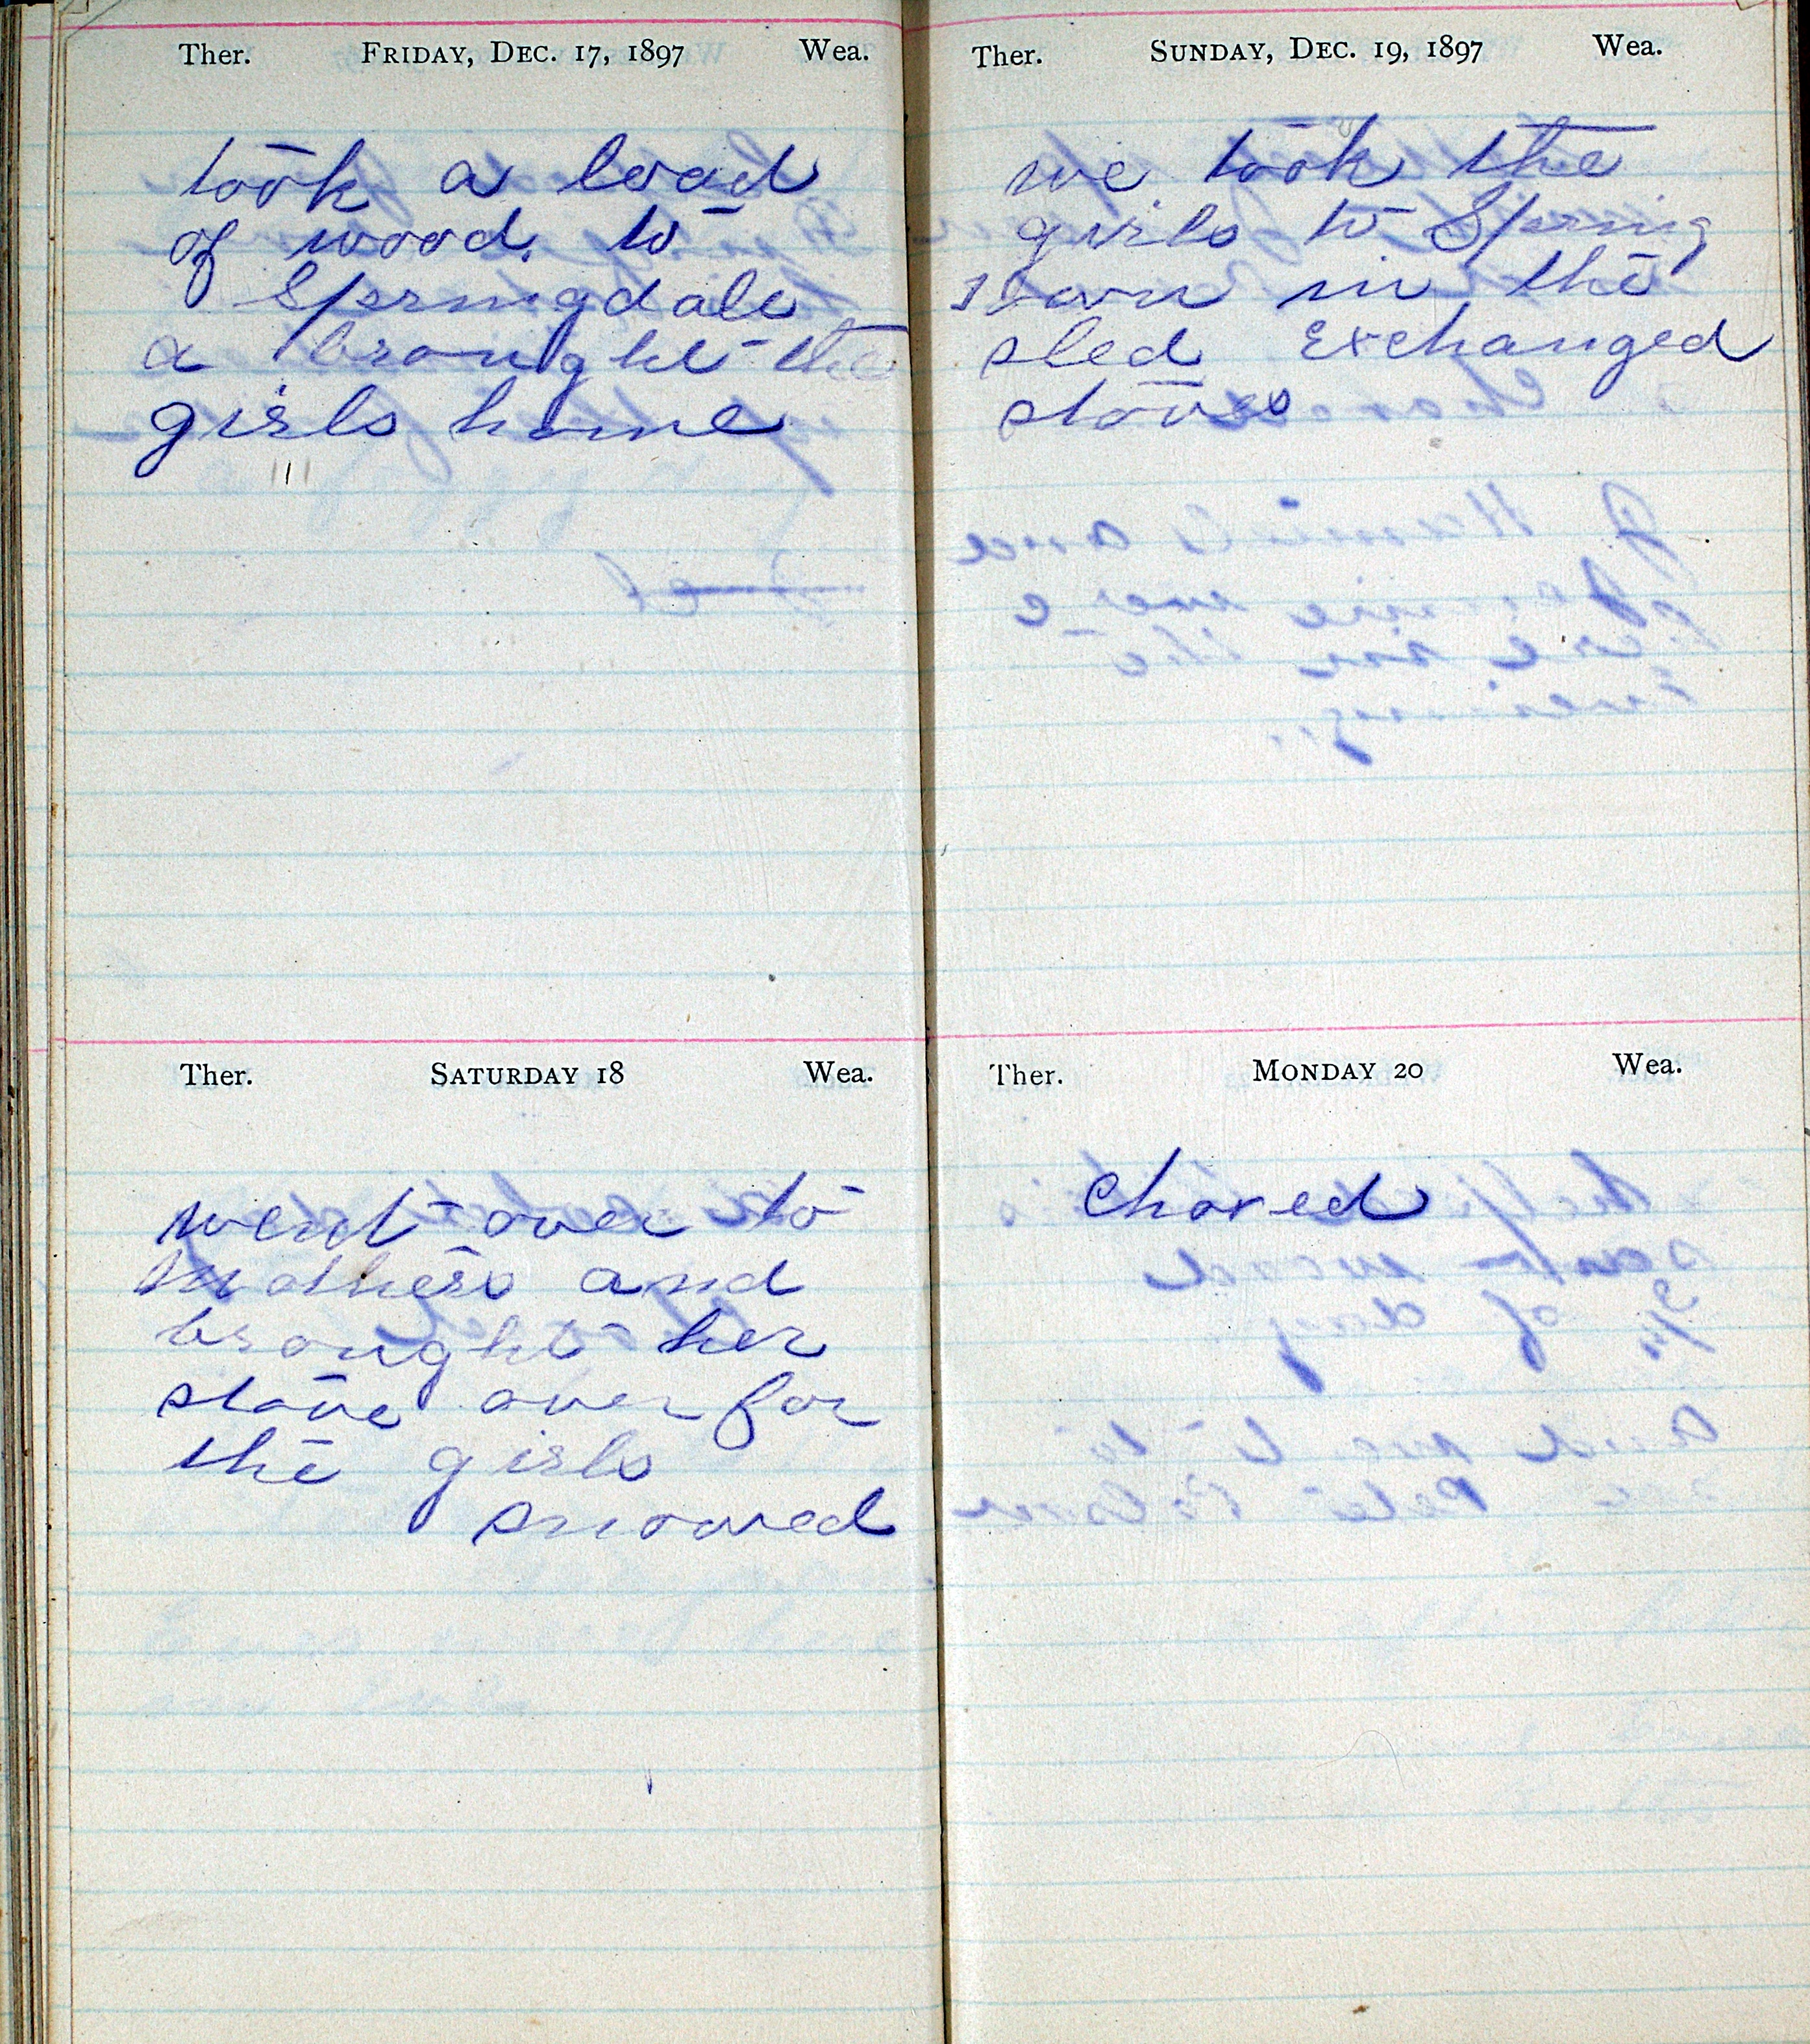 Ther. FRIDAY, DEC. 17, 1897 Wea.
took a load
of wood to
Springdale
a brought the
girls home
Ther. SATURDAY 18 Wea.
went over to
Mothers and
brought her
stove over for
the girls
snowed
Ther. SUNDAY, DEC. 19, 1897 Wea.
we took the
girls to Spring
in the
sled exchanged
stoves
Ther. MONDAY 20 Wea.
Chored